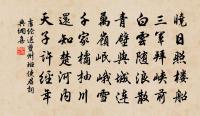 曉日照樓船
三軍拜峽前
白雲隨浪散
青壁與城連
萬嶺岷峨雪
千家橘柚川
還知楚河內
天子許經年
盧綸送夔州班使君詞